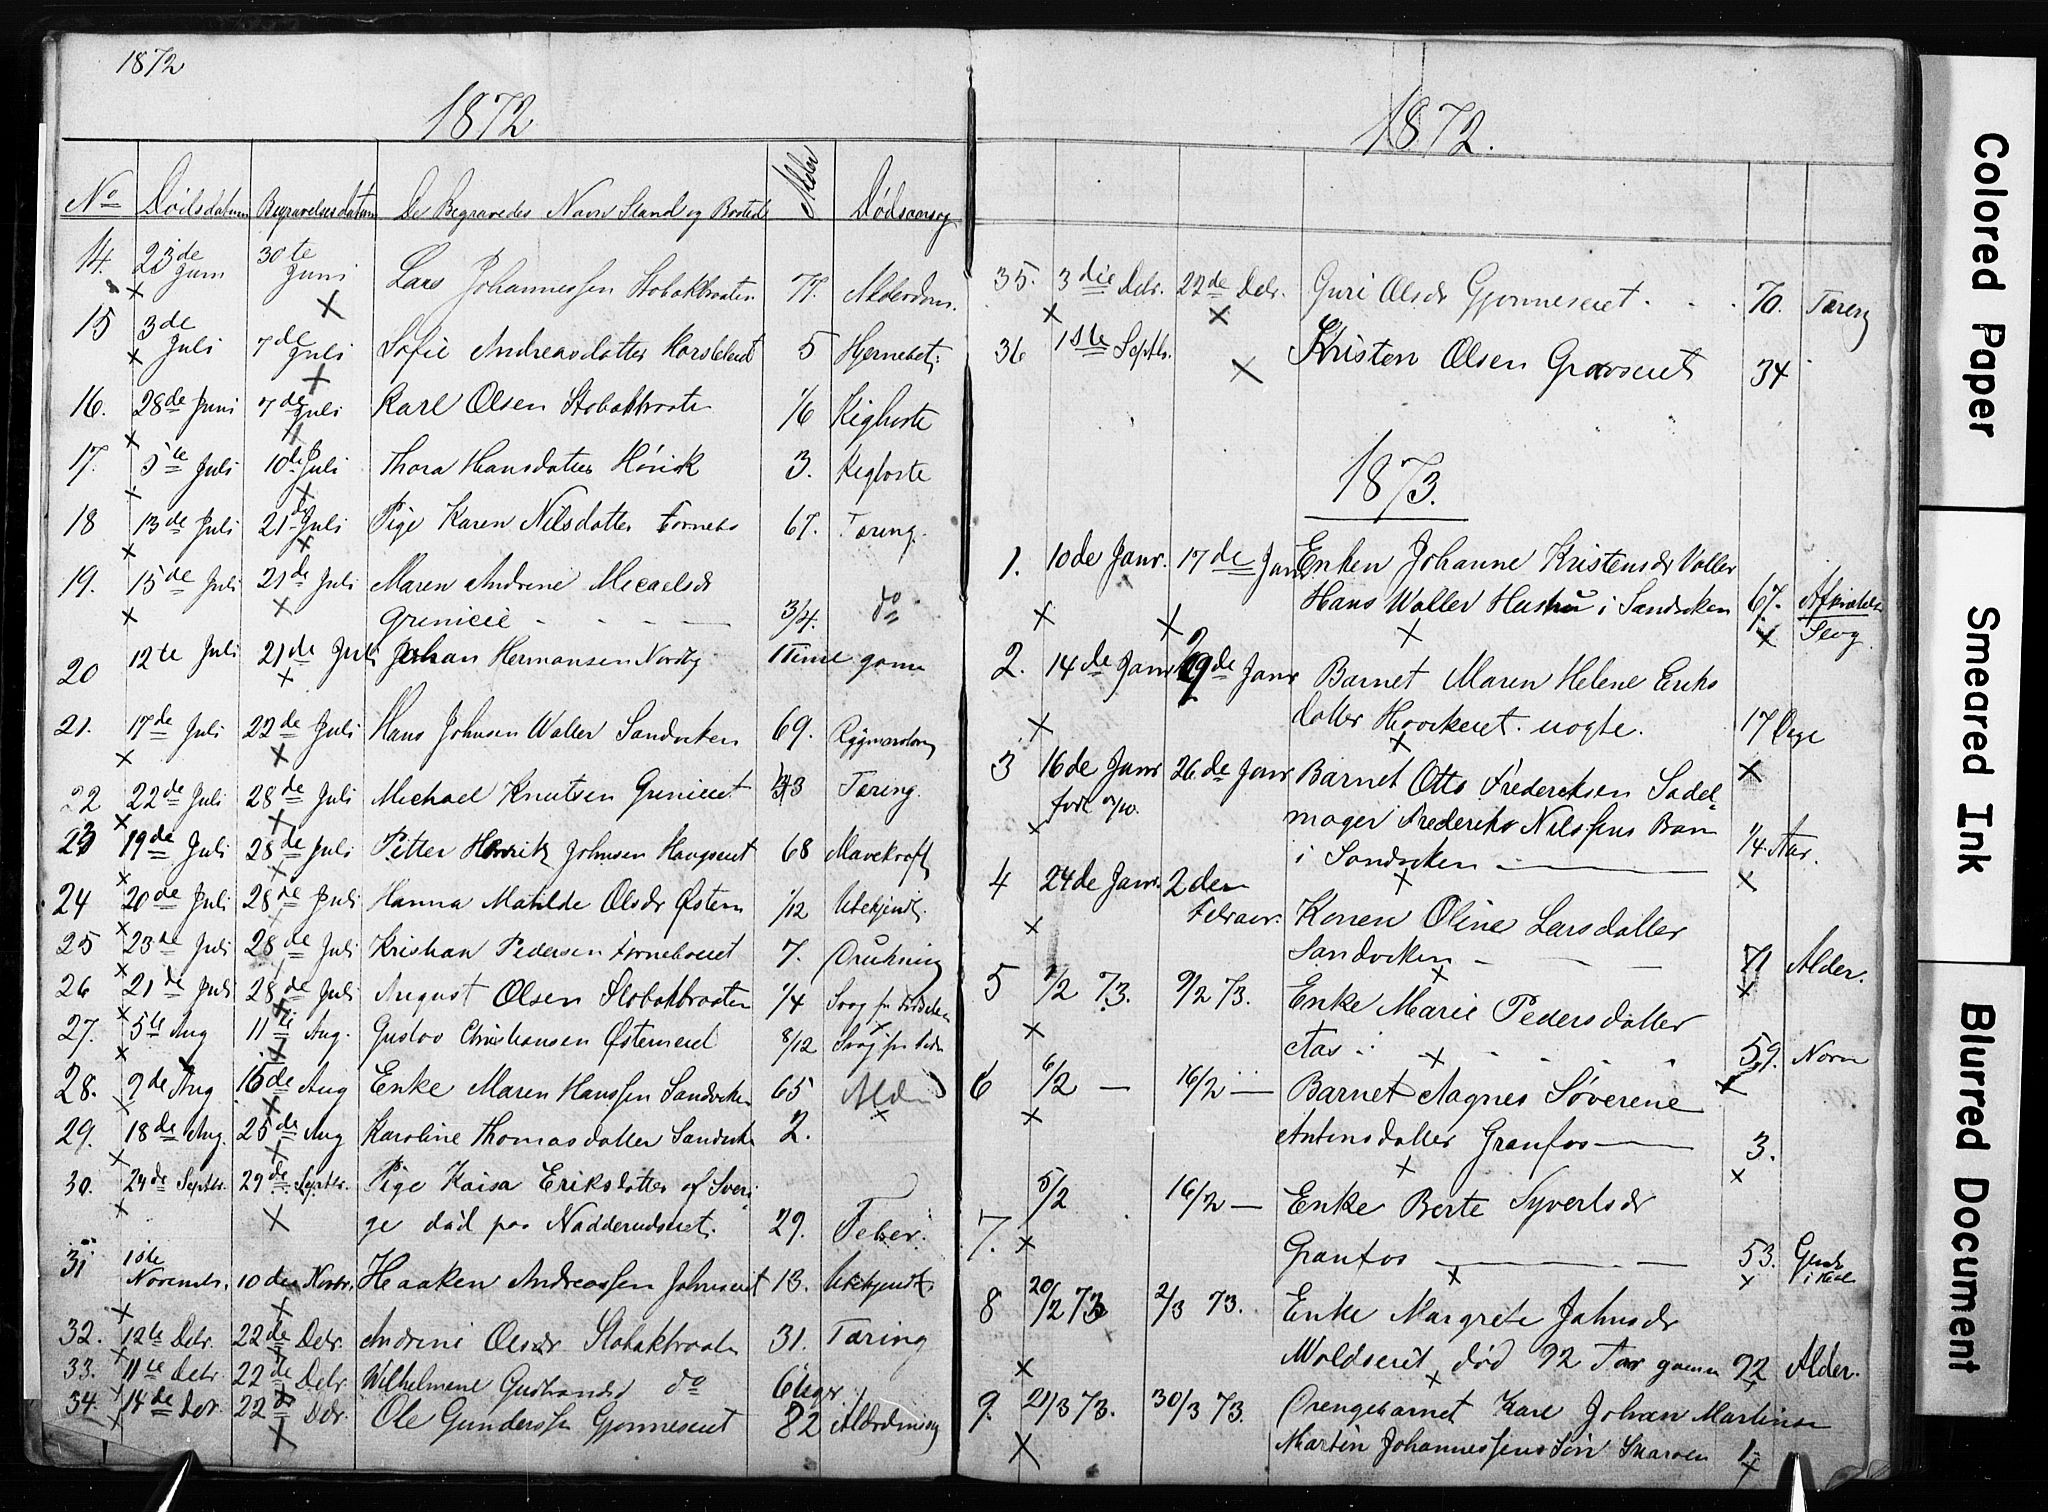 1872
1872
No Dödsdatum Begravelsesdatum De Begravedes Navn Stand og Bosted Alder Dødsaarsag
14. 23de Juni 30te Juni Lars Johannessen Stobakbraaten 77. Alderdom.
15 3de Juli 7de Juli Sofie Andreasdatter 5 Hjernebet.
16. 28de Juni 7de Juli Karl Olsen Stobakbraaten 1/6 Kighoste
17. 5te Juli 10de Juli Thora Hansdatter Hövik 3. Kighoste
18 13de Juli 21de Juli Pige Karen Nilsdatter Fornebo 67. Tæring.
19. 15de Juli 21de Juli Maren Andrine Micaelsdr
Grinieie - - - 3/4. do
20 12te Juli 21de Juli Johan Hermansen Nordby 1 Time gamm
21. 17de Juli 22de Juli Hans Johnsen Waller Sandviken 69. Rygmarvstæring
22 22de Juli 28de Juli Michael Knutsen Grinieiet 43 Tæring.
23 19de Juli 28de Juli Petter Henrik Johnsen Haugseiet 68 Mavekræft
24 20de Juli 28de Juli Hanna Matilde Olsdr Østern 1/12 Ubekjendt.
25 23de Juli 28de Juli Kristian Pedersen Forneboeiet 7. Drukning
26 21de Juli 28de Juli August Olsen Stobakbraaten 1/4 Svag fr Fødselen
27. 5te Aug 11te Aug. Gustav Christiansen Østerneiet 8/12 Svag fr
28. 9de Aug 16de Aug Enke Maren Hanssen Sandviken 65 Alder
29. 18de Aug. 25de Aug Karoline Thomasdatter Sandvike 2.
30. 24de Septbr. 29de Septbr. Pige Kaisa Eriksdatter af Sveri
ge død paa Nadderudseiet. 29. Feber.
31 1ste Novembr. 10de Novbr. Haaken Andreassen Johnseiet 13. Ubekjendt
32. 12te Debr. 22de Debr. Andrine Olsdr Stobakbraaten 31. Tæring
33. 11te Debr 22de Debr. Wilhelmine Gudbrandsd do 6 Uger
34. 14de Dbr. 22de Debr. Ole Gunderssen Gjønneseiet 82
1872.
35. 3die Debr. 22de Debr. Guri Olsdr Gjønneseiet. . . 70. Tæring
36 1ste Septbr. Kristen Olsen Gravseiet 34
1873.
1. 10de Janr. 17de Janr Enken Johanne Kristensdr Valler
Hans Waller Hustru i Sandviken 67. Afkræftelse
Slag
2. 14de Janr 19de Janr Barnet Maren Helene Eriks
datter Høvikeiet. uægte. 17 Dage
3 16de Janr 26de Janr Barnet Otto Frederiksen Sadel-
mager Frederiks Nilssens Barn
i Sandviken 1/4. Aar.
4 24de Janr. 2den Februar. Konen Oline Larsdatter
Sandviken - - 71 Alder.
5 1/2 73. 9/2 73. Enke Marie Pedersdatter
Aas - - - 59. Nerv
6 6/2 — 16/2 — Barnet Aagnes Søverene
Antonsdatter Granfos — 3.
7. 5/2 16/2 — Enke Berte Syvertsdr
Granfos — 53.
8 20/2 73 2/3 73. Enke Margrete Jahnsdr
Woldseiet, død 92 Aar gamm 92 Alder.
9. 21/3 73. 30/3 73. Drengebarnet Karl Johan Martinse
Martin Johannessens Søn Snarøen 1.
Colored Paper
Smeared Ink
Blurred Document